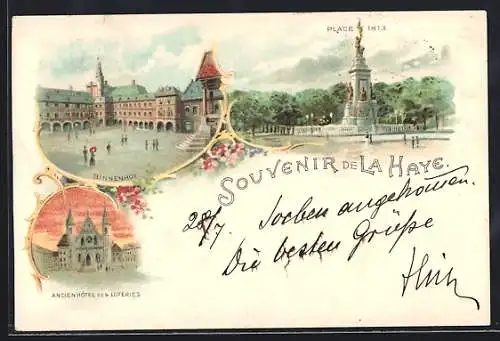 PLACE 1813
BINNENHOF
SOUVENIR DE LA HAYE.
ANCIEN HÔTEL DES LOTERIES
28/7. Soeben angekommen.
Die besten Grüße